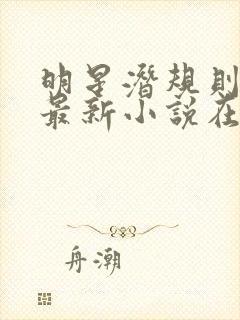 明星潛規則
最新小說在
舟潮